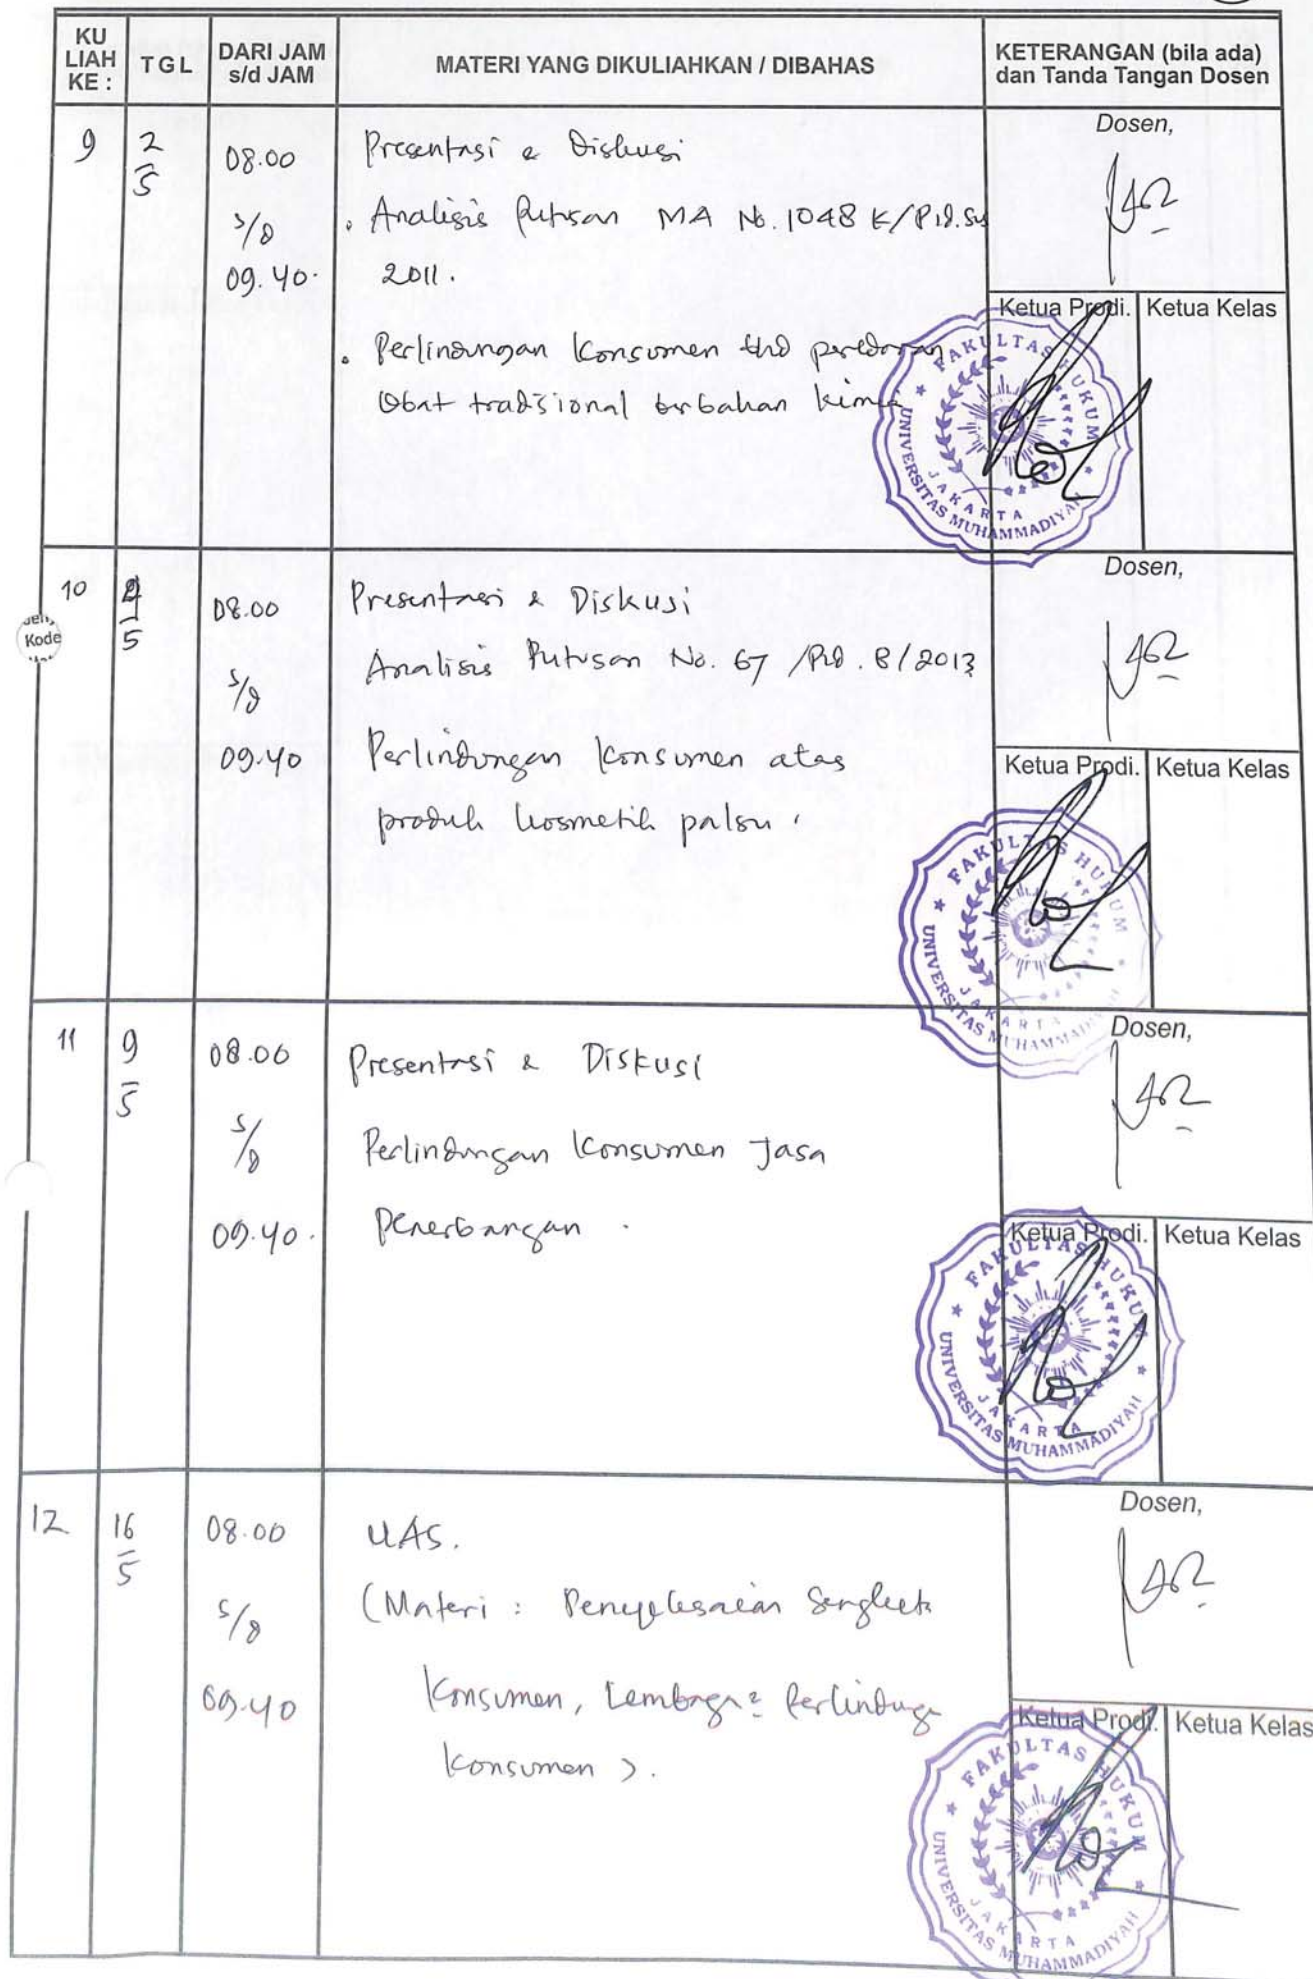 KU
LIAH
KE :
TGL
DARI JAM
s/d JAM
MATERI YANG DIKULIAHKAN / DIBAHAS
KETERANGAN (bila ada)
dan Tanda Tangan Dosen
9
2
5
08.00
s/d
09.40.
Presentasi & Diskusi
. Analisis Putusan MA No. 1048 K/Pid.Sus
2011.
. Perlindungan Konsumen thd peredaran
Obat tradisional berbahan kimia
Dosen,
Ketua Prodi.
Ketua Kelas
FAKULTAS HUKUM
UNIVERSITAS MUHAMMADIYAH
JAKARTA
Kode
10
5
08.00
s/d
09.40
Presentasi & Diskusi
Analisis Putusan No. 67 /Pid.B/2013
Perlindungan Konsumen atas
produk kosmetik palsu.
Dosen,
Ketua Prodi.
Ketua Kelas
FAKULTAS HUKUM
UNIVERSITAS MUHAMMADIYAH
JAKARTA
11
9
5
08.00
s/d
09.40.
Presentasi & Diskusi
Perlindungan Konsumen Jasa
Penerbangan.
Dosen,
Ketua Prodi.
Ketua Kelas
FAKULTAS HUKUM
UNIVERSITAS MUHAMMADIYAH
JAKARTA
12
16
5
08.00
s/d
09.40
UAS.
(Materi : Penyelesaian Sengketa
Konsumen, Lembaga2 Perlindungan
Konsumen ).
Dosen,
Ketua Prodi.
Ketua Kelas
FAKULTAS HUKUM
UNIVERSITAS MUHAMMADIYAH
JAKARTA